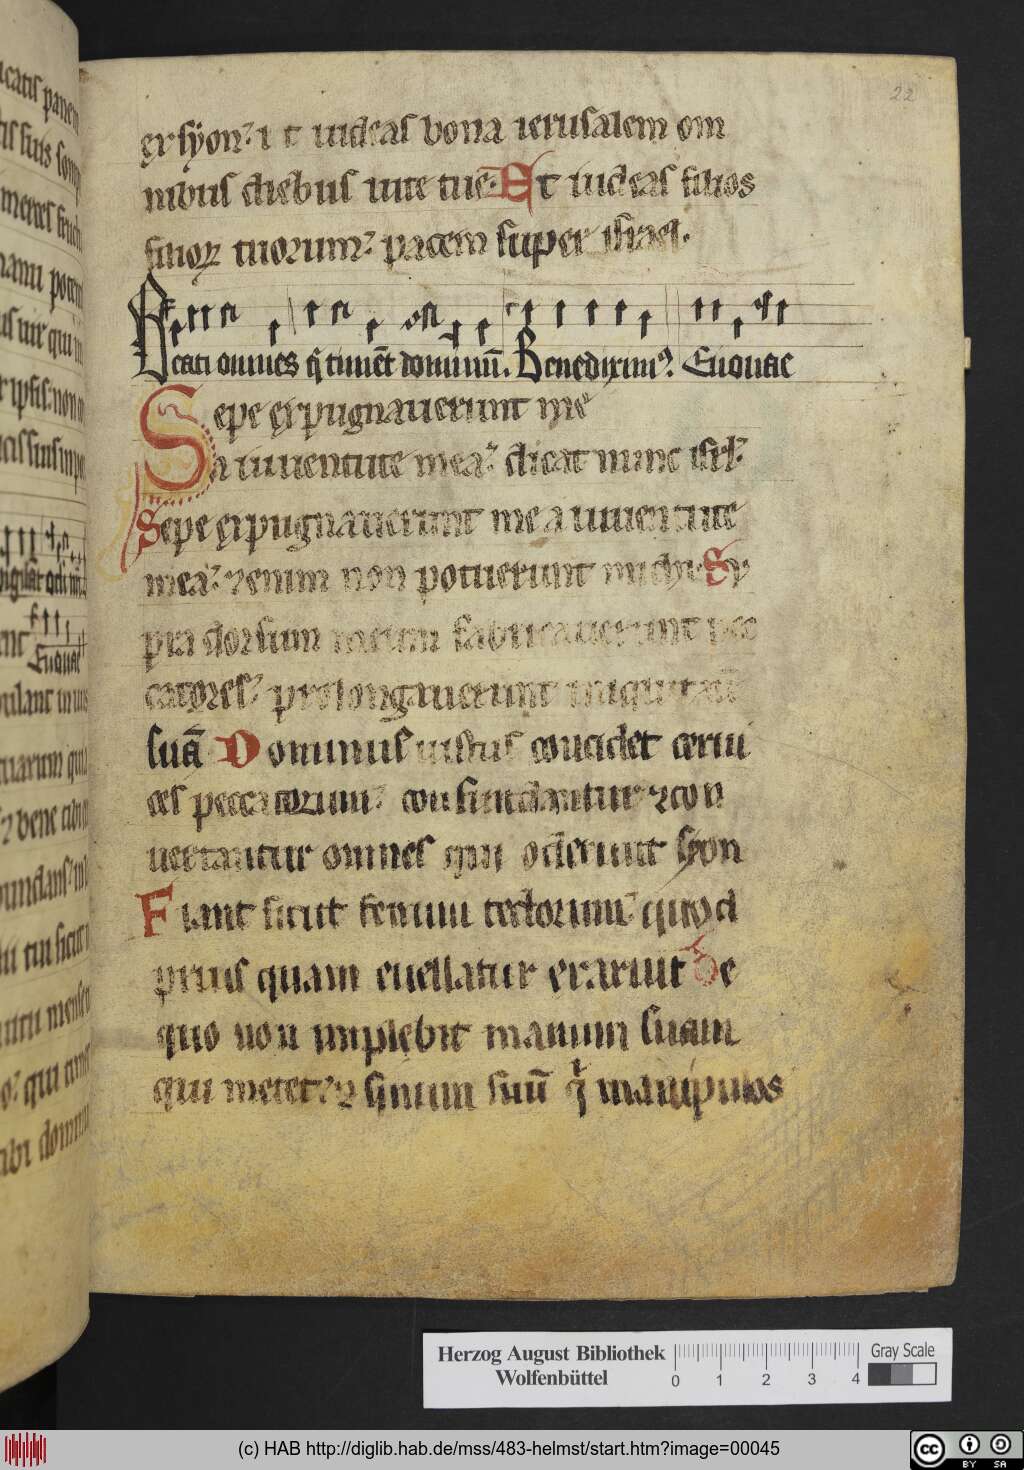 22
er syon: ⁊ t uideas bona ierusalem om
nibus diebus uite tue. Et uideas filios
filioꝝ tuorum: pacem super israel.
Beati omnes q̄ timēt dominū. Benediximꝰ. Euouae
Sepe expugnauerunt me
a iuuentute mea: dicat nunc isrl:
Sepe expugnauerunt me a iuuentute
mea: ⁊enim non potuerunt michi. Su
pra dorsum meum fabricauerunt pec
catores: prolongauerunt iniquitatē
suā Dominus iustus concidet cerui
ces peccatorum: confundantur ⁊con
uertantur omnes qui oderunt syon
Fiant sicut fenum tectorum: quod
prius quam euellatur exaruit De
quo non implebit manum suam
qui metet: ⁊ sinum suū q̄ manipulos
Herzog August Bibliothek
Wolfenbüttel
0 1 2 3 4
Gray Scale
(c) HAB http://diglib.hab.de/mss/483-helmst/start.htm?image=00045
cc BY SA